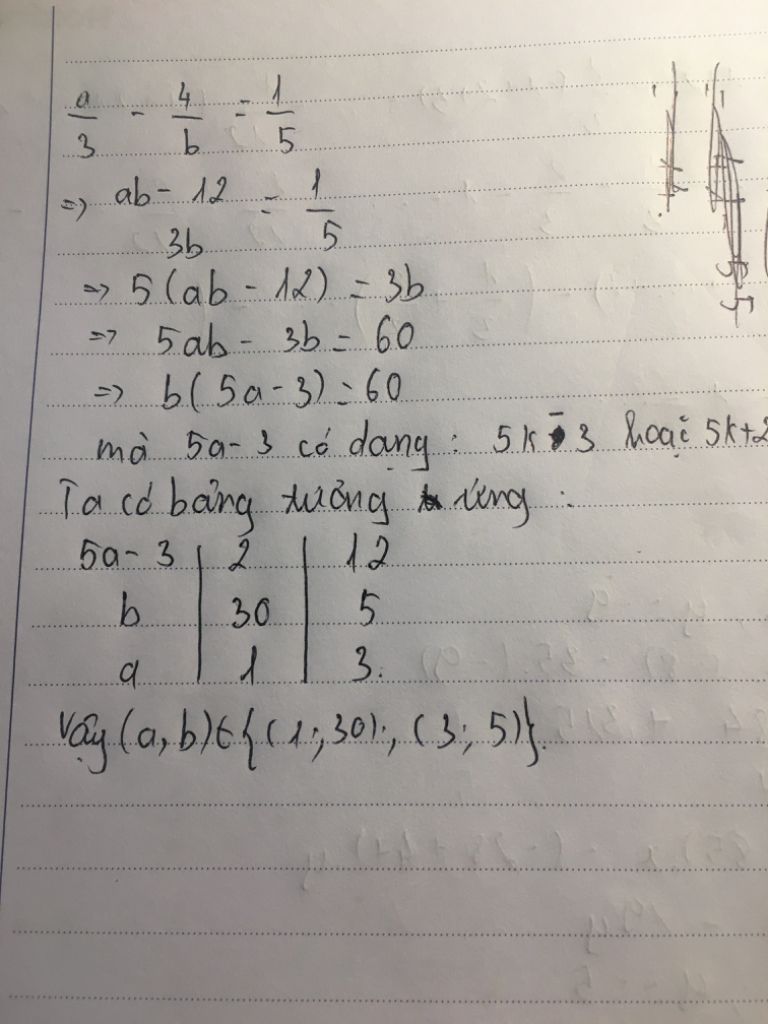 a/3 - 4/b = 1/5
=> ab - 12 / 3b = 1/5
=> 5(ab - 12) = 3b
=> 5ab - 3b = 60
=> b(5a - 3) = 60
mà 5a - 3 có dạng : 5k - 3 hoặc 5k+2
Ta có bảng tương ứng :
5a - 3 | 2 | 12
b | 30 | 5
a | 1 | 3.
Vậy (a, b) ∈ {(1; 30); (3; 5)}.